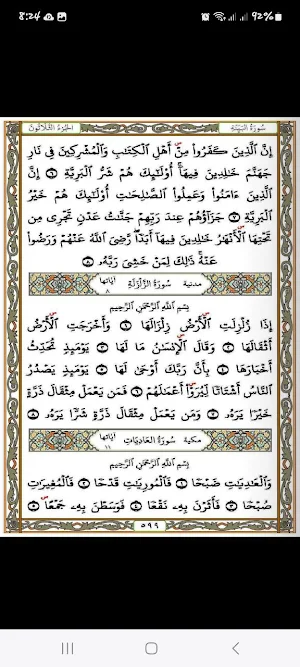 8:24 92%
سُورَةُ البَيِّنَةِ الجُزءُ الثَّلَاثُونَ
إِنَّ الَّذِينَ كَفَرُوا۟ مِنْ أَهْلِ الْكِتَٰبِ وَالْمُشْرِكِينَ فِى نَارِ
جَهَنَّمَ خَٰلِدِينَ فِيهَآ أُو۟لَٰٓئِكَ هُمْ شَرُّ الْبَرِيَّةِ ٦ إِنَّ
الَّذِينَ ءَامَنُوا۟ وَعَمِلُوا۟ الصَّٰلِحَٰتِ أُو۟لَٰٓئِكَ هُمْ خَيْرُ
الْبَرِيَّةِ ٧ جَزَآؤُهُمْ عِندَ رَبِّهِمْ جَنَّٰتُ عَدْنٍ تَجْرِى مِن
تَحْتِهَا الْأَنْهَٰرُ خَٰلِدِينَ فِيهَآ أَبَدًا رَّضِىَ اللَّهُ عَنْهُمْ وَرَضُوا۟
عَنْهُ ذَٰلِكَ لِمَنْ خَشِىَ رَبَّهُۥ ٨
مدنية سُورَةُ الزَّلْزَلَةِ آيَاتُهَا ٨
بِسْمِ اللَّهِ الرَّحْمَٰنِ الرَّحِيمِ
إِذَا زُلْزِلَتِ الْأَرْضُ زِلْزَالَهَا ١ وَأَخْرَجَتِ الْأَرْضُ
أَثْقَالَهَا ٢ وَقَالَ الْإِنسَٰنُ مَا لَهَا ٣ يَوْمَئِذٍ تُحَدِّثُ
أَخْبَارَهَا ٤ بِأَنَّ رَبَّكَ أَوْحَىٰ لَهَا ٥ يَوْمَئِذٍ يَصْدُرُ
النَّاسُ أَشْتَاتًا لِّيُرَوْا۟ أَعْمَٰلَهُمْ ٦ فَمَن يَعْمَلْ مِثْقَالَ ذَرَّةٍ
خَيْرًا يَرَهُۥ ٧ وَمَن يَعْمَلْ مِثْقَالَ ذَرَّةٍ شَرًّا يَرَهُۥ ٨
مكية سُورَةُ العَادِيَاتِ آيَاتُهَا ١١
بِسْمِ اللَّهِ الرَّحْمَٰنِ الرَّحِيمِ
وَالْعَٰدِيَٰتِ ضَبْحًا ١ فَالْمُورِيَٰتِ قَدْحًا ٢ فَالْمُغِيرَٰتِ
صُبْحًا ٣ فَأَثَرْنَ بِهِۦ نَقْعًا ٤ فَوَسَطْنَ بِهِۦ جَمْعًا ٥
٥٩٩